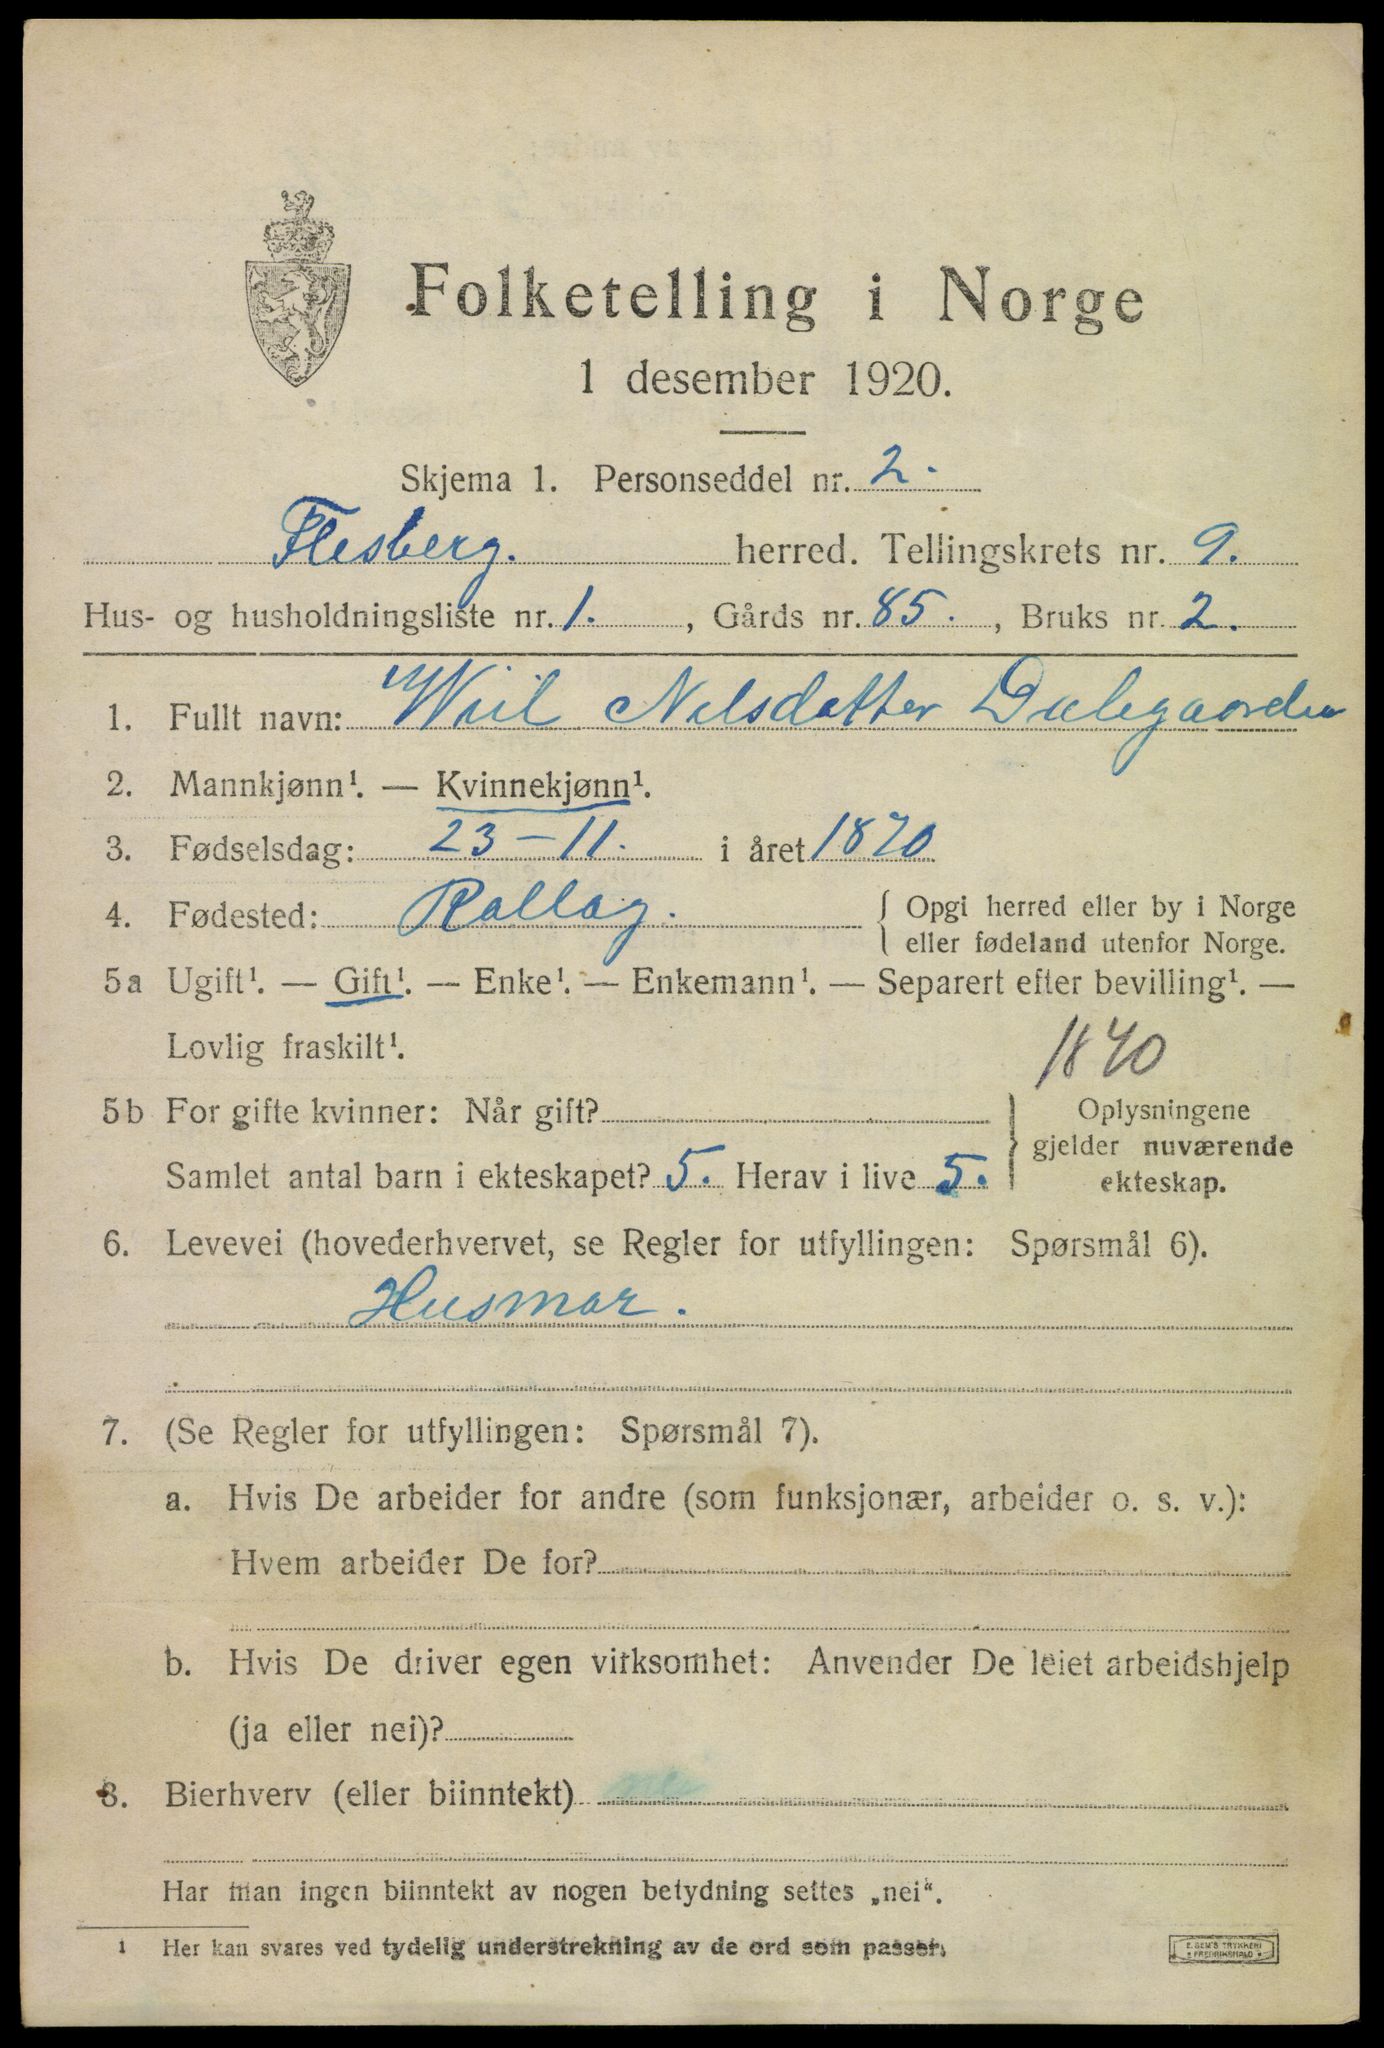 Folketelling i Norge
1 desember 1920.
Skjema 1. Personseddel nr. 2.
Flesberg. herred. Tellingskrets nr. 9.
Hus- og husholdningsliste nr. 1. , Gårds nr. 85. , Bruks nr. 2.
1. Fullt navn: Wiil Nilsdatter Dalegaarden
2. Mannkjønn¹. — Kvinnekjønn¹.
3. Fødselsdag: 23-11. i året 1870
4. Fødested: Rollag. { Opgi herred eller by i Norge
eller fødeland utenfor Norge.
5a Ugift¹. — Gift¹. — Enke¹. — Enkemann¹. — Separert efter bevilling¹. —
Lovlig fraskilt¹.
1840
5b For gifte kvinner: Når gift?
Samlet antal barn i ekteskapet? 5. Herav i live 5.
} Oplysningene
gjelder nuværende
ekteskap.
6. Levevei (hovederhvervet, se Regler for utfyllingen: Spørsmål 6).
Husmor.
7. (Se Regler for utfyllingen: Spørsmål 7).
a. Hvis De arbeider for andre (som funksjonær, arbeider o. s. v.):
Hvem arbeider De for?
b. Hvis De driver egen virksomhet: Anvender De leiet arbeidshjelp
(ja eller nei)?
8. Bierhverv (eller biinntekt) nei
Har man ingen biinntekt av nogen betydning settes „nei“.
1 Her kan svares ved tydelig understrekning av de ord som passer.
E. SEM'S TRYKKERI
FREDRIKSHALD